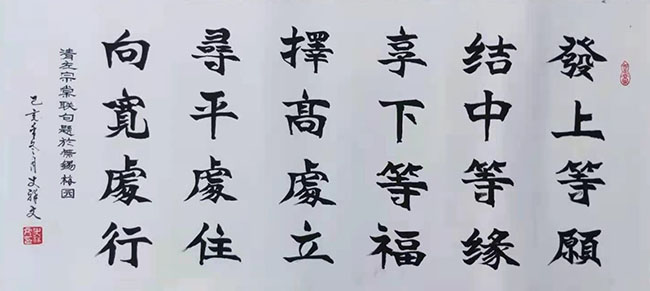 發上等願
结中等缘
享下等福
擇髙處立
尋平處住
向寬處行
清左宗棠联句题於無錫梅园
己亥年冬月史祥文